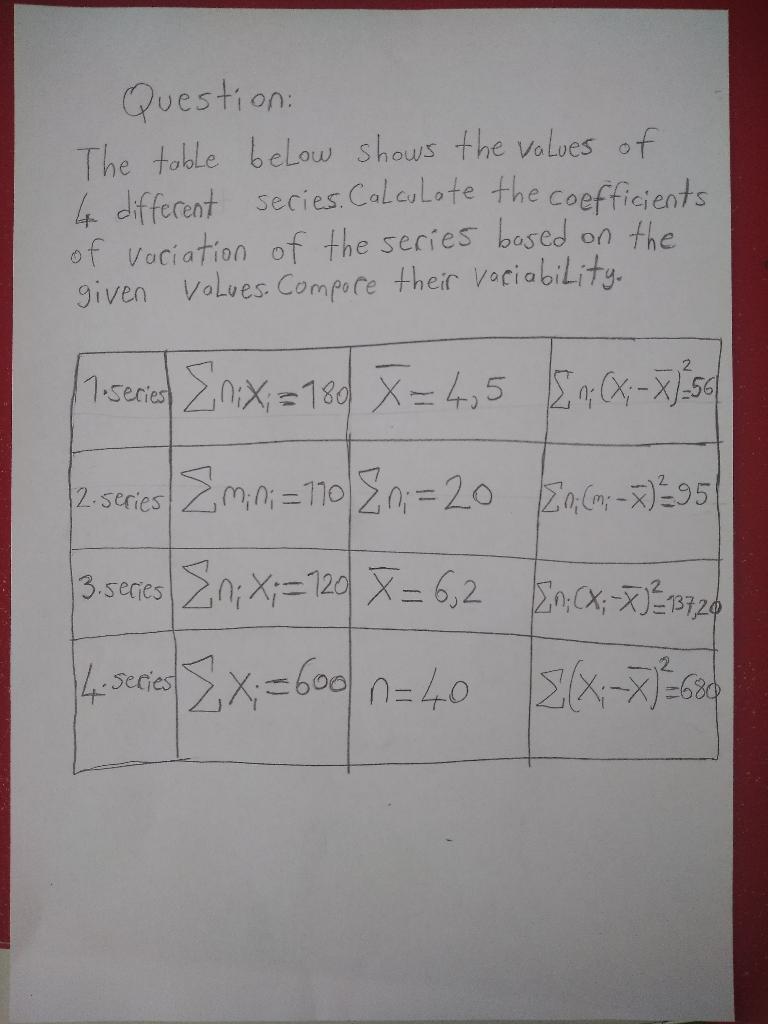 Question:
The table below shows the values of
4 different series. Calculate the coefficients
of variation of the series based on the
given values. Compare their variability.
1.series ∑nᵢxᵢ=180 x̄=4,5 ∑nᵢ(xᵢ-x̄)²=56
2.series ∑mᵢnᵢ=110 ∑nᵢ=20 ∑nᵢ(mᵢ-x̄)²=95
3.series ∑nᵢxᵢ=120 x̄=6,2 ∑nᵢ(xᵢ-x̄)²=137,20
4.series ∑xᵢ=600 n=40 ∑(xᵢ-x̄)²=680